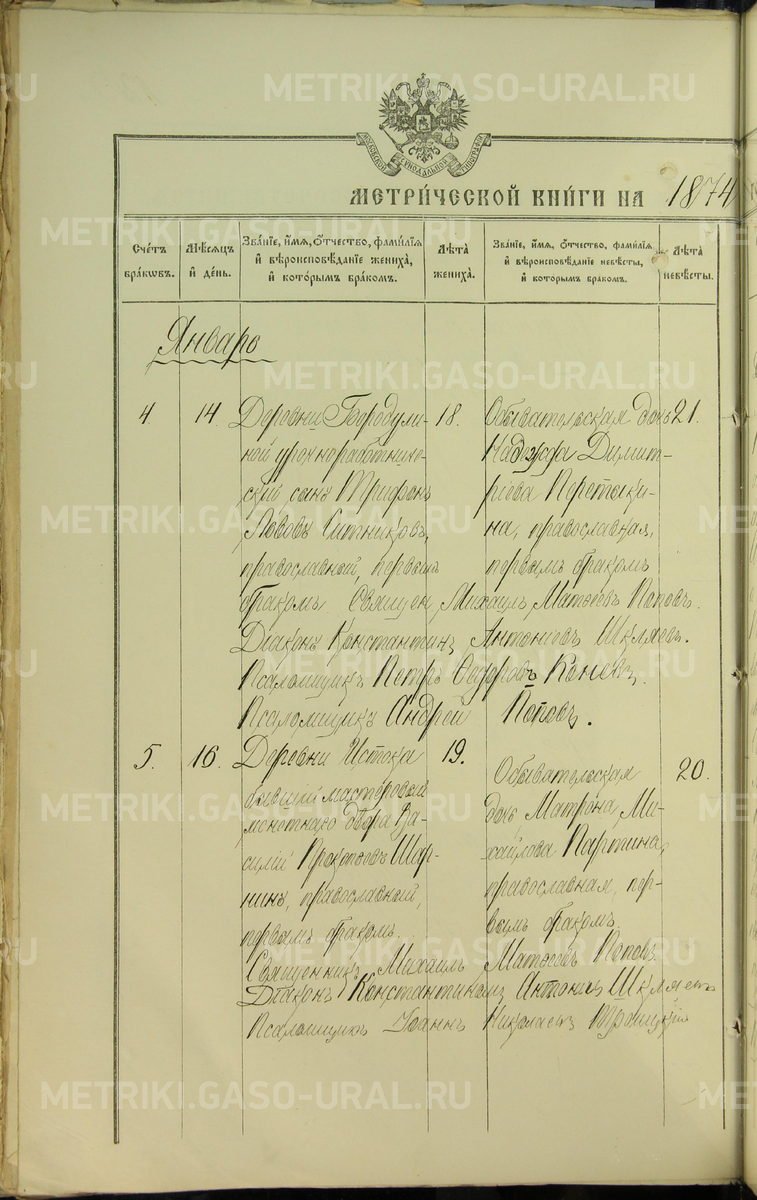 METRIKI.GASO-URAL.RU
МОСКОВСКОЙ СѴНОДАЛЬНОЙ ТИПОГРАФІИ
МЕТРИ́ЧЕСКОЙ КНИ́ГИ НА 1874
Сче́тъ бра́кѡвъ.
Мѣ́сѧцъ и҆ де́нь.
Зва́нїе, и҆́мѧ, ѻ҆́тчество, фами́лїѧ и҆ вѣроисповѣ́данїе жениха́, и҆ кото́рымъ бра́комъ.
Лѣ́та жениха̀.
Зва́нїе, и҆́мѧ, ѻ҆́тчество, фами́лїѧ и҆ вѣроисповѣ́данїе невѣ́сты, и҆ кото́рымъ бра́комъ.
Лѣ́та невѣ́сты.
Январь
4
14.
Деревни Бородули-
ной урочноработниче-
скій сынъ Трифонъ
Львовъ Ситниковъ,
православный, первымъ
бракомъ.
18.
Обывательская дочь
Надежда Димит-
ріева Перетыки-
на, православная,
первымъ бракомъ
21.
Священ. Михаилъ Матѳеевъ Поповъ.
Діаконъ Константинъ Антоніевъ Шкляевъ.
Псаломщикъ Петръ Сидоровъ Коневъ.
Псаломщикъ Андрей Поповъ.
5.
16.
Деревни Истока
бывшій мастеровой
монетнаго двора Ва-
силій Прокопьевъ Шар-
нинъ, православный,
первымъ бракомъ.
19.
Обывательская
дочь Матрена Ми-
хайлова Партина,
православная, пер-
вымъ бракомъ.
20.
Священникъ Михаилъ Матѳеевъ Поповъ.
Діаконъ Константинъ Антоніевъ Шкляевъ
Псаломщикъ Іоаннъ Николаевъ Троицкій